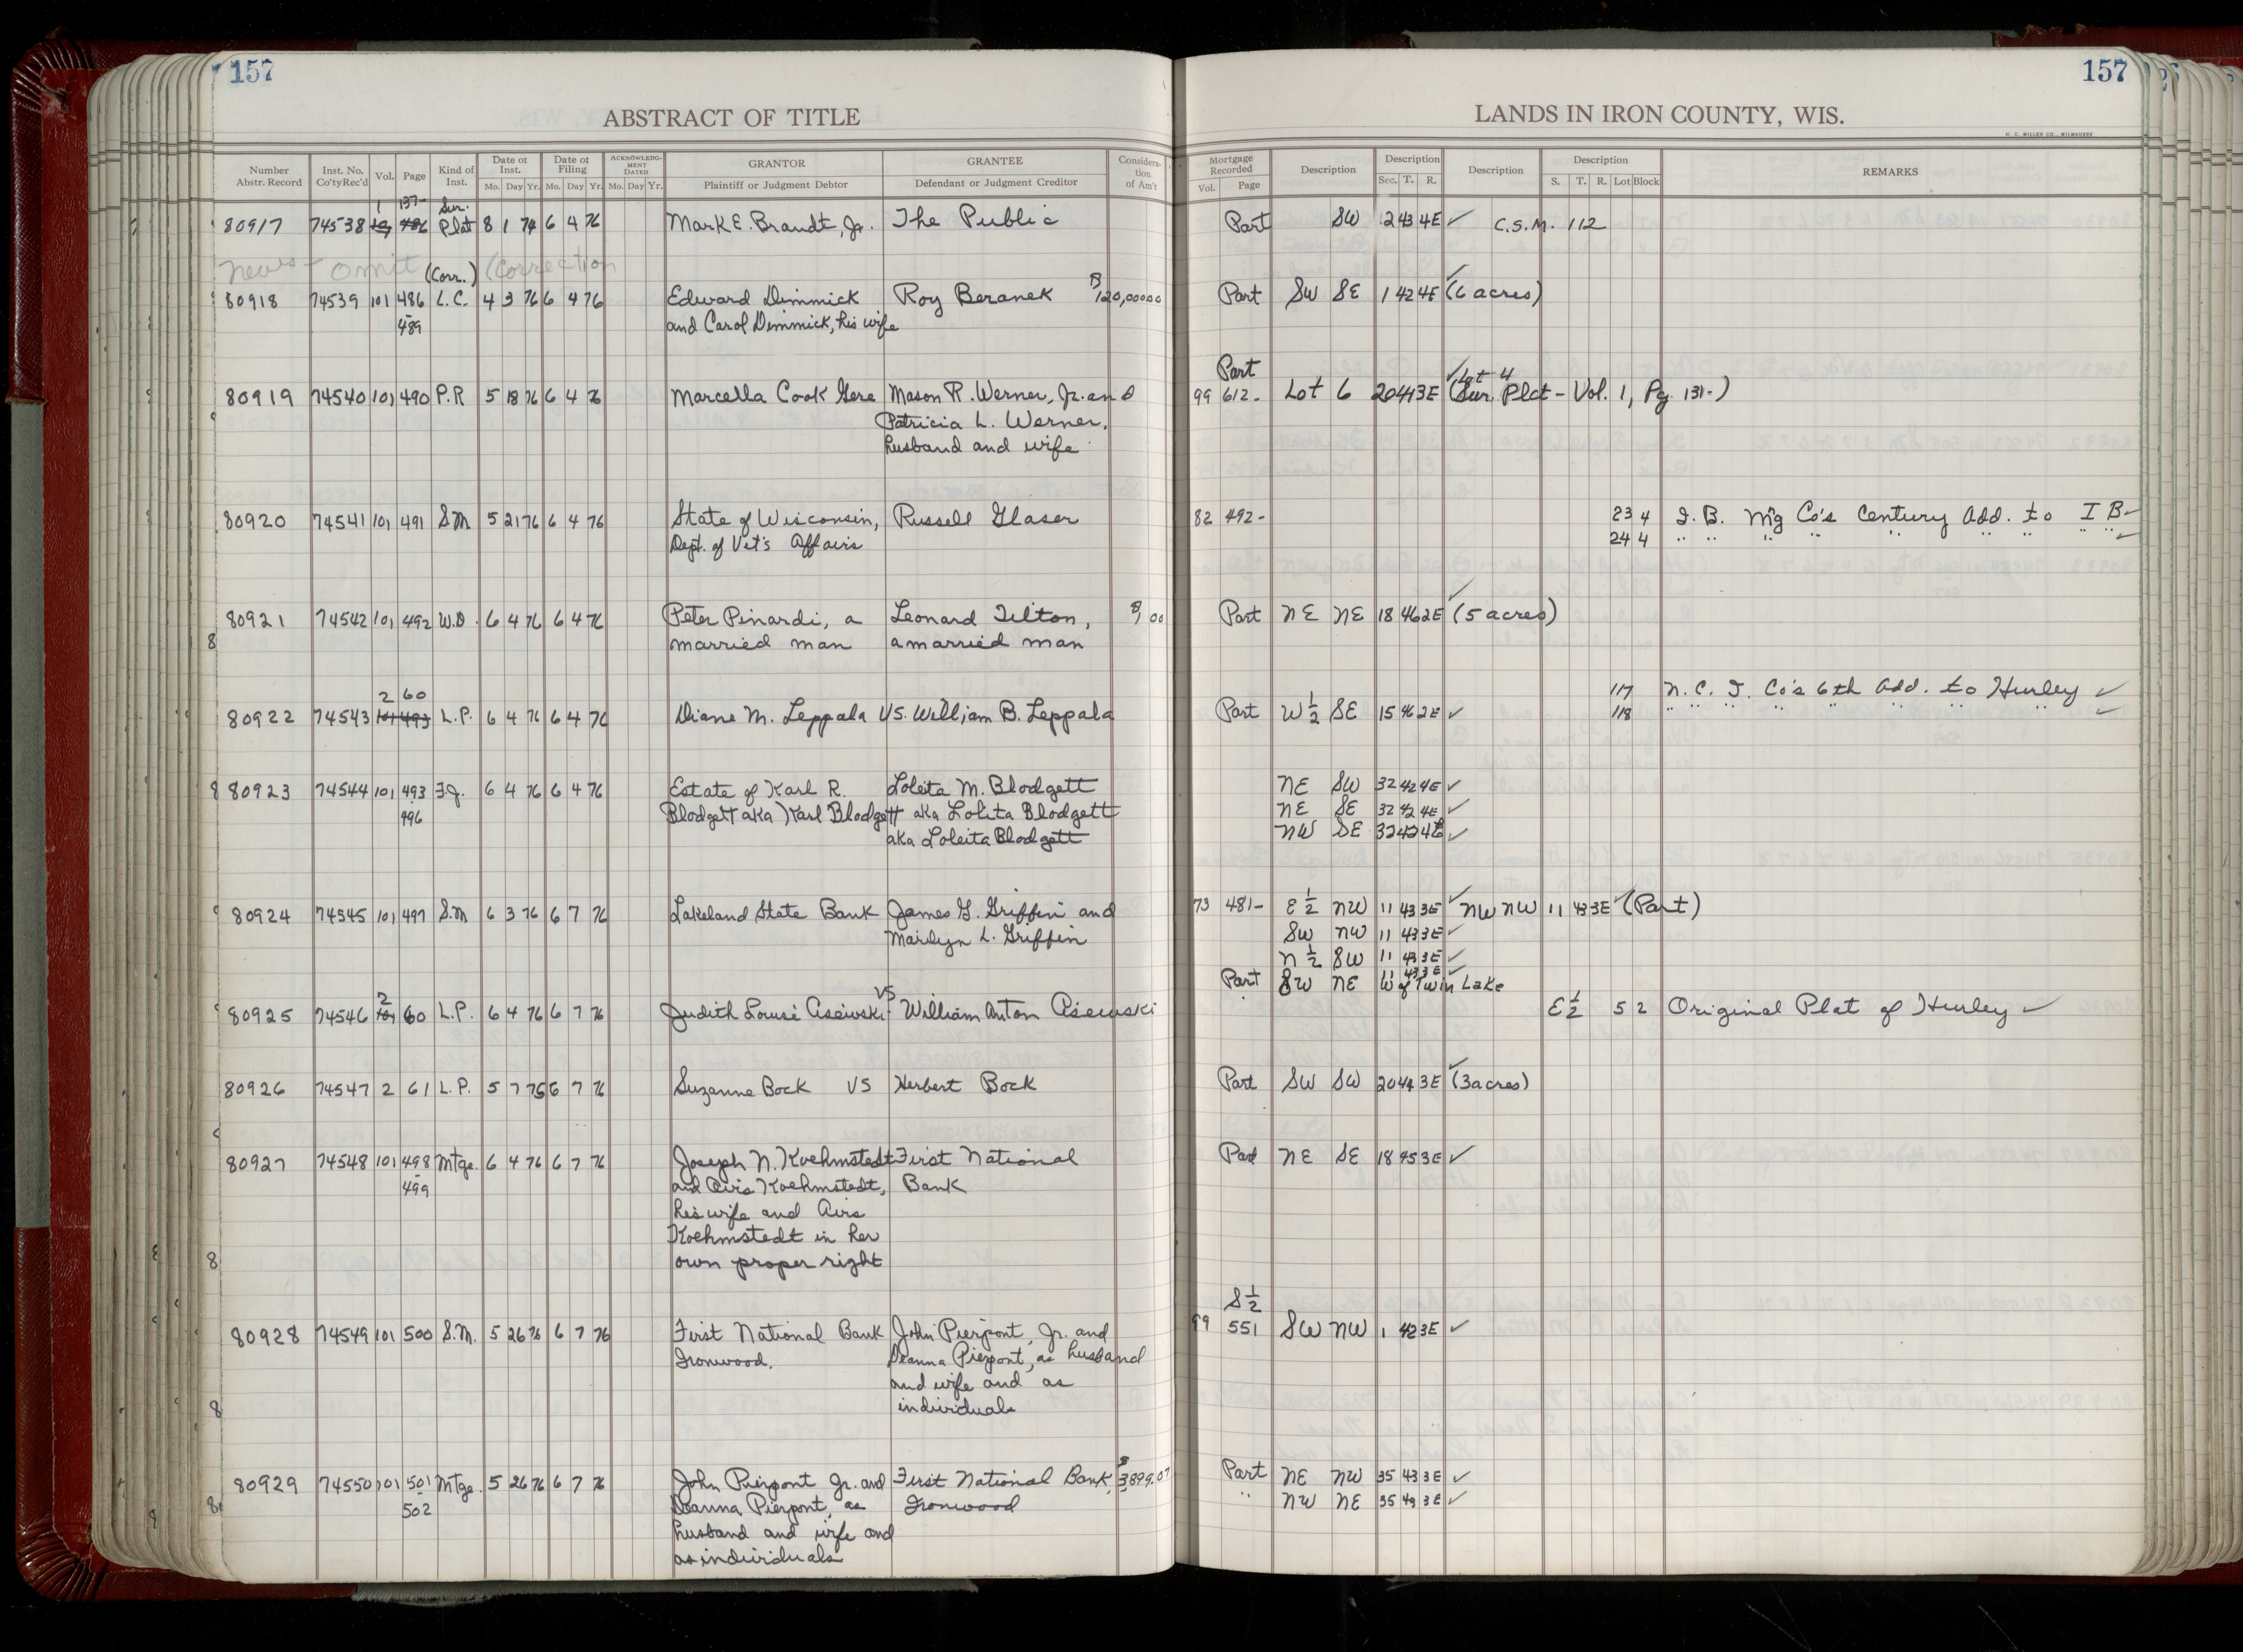 157
157
ABSTRACT OF TITLE
LANDS IN IRON COUNTY, WIS.
H. C. MILLER CO., MILWAUKEE
Number Abstr. Record Inst. No. Co'ty Rec'd Vol. Page Kind of Inst. Date of Inst. Mo. Day Yr. Date of Filing Mo. Day Yr. ACKNOWLEDGMENT DATED Mo. Day Yr. GRANTOR Plaintiff or Judgment Debtor GRANTEE Defendant or Judgment Creditor Consideration of Am't Mortgage Recorded Vol. Page Description Description Sec. T. R. Description Description S. T. R. Lot Block REMARKS
1 137- Sur.
80917 74538 Plat 8 1 74 6 4 76 Mark E. Brandt, Jr. The Public Part SW 12 43 4E ✓ C.S.M. 112
news - omit (Corr.) (Correction
80918 74539 101 486 L.C. 4 3 76 6 4 76 Edward Dimmick Roy Beranek $120,000 00 Part SW SE 1 42 4E ✓ (6 acres)
- 489 and Carol Dimmick, his wife
Part ✓ Lot 4
80919 74540 101 490 P.R 5 18 76 6 4 76 Marcella Cook Gere Mason R. Werner, Jr. and 99 612- Lot 6 20 44 3E (Sur. Plat - Vol. 1, Pg. 131-)
Patricia L. Werner,
husband and wife
80920 74541 101 491 S.M. 5 21 76 6 4 76 State of Wisconsin, Russell Glaser 82 492- 23 4 I. B. M'g Co's Century Add. to I B ✓
Dept. of Vet's Affairs 24 4 " " " " " " " " " ✓
80921 74542 101 492 W.D. 6 4 76 6 4 76 Peter Pinardi, a Leonard Tilton, $1 00 Part NE NE 18 46 2E ✓ (5 acres)
8 married man a married man
2 60 117 N. C. I. Co's 6th Add. to Hurley ✓
80922 74543 101 493 L.P. 6 4 76 6 4 76 Diane M. Leppala VS. William B. Leppala Part W ½ SE 15 46 2E ✓ 118 " " " " " " " " ✓
8 80923 74544 101 493 F.J. 6 4 76 6 4 76 Estate of Karl R. Loleita M. Blodgett NE SW 32 42 4E ✓
- 496 Blodgett aka Karl Blodgett aka Lolita Blodgett NE SE 32 42 4E ✓
aka Loleita Blodgett NW SE 32 42 4E ✓
80924 74545 101 497 S.M 6 3 76 6 7 76 Lakeland State Bank James G. Griffin and 73 481- E ½ NW 11 43 3E ✓ NW NW 11 43 3E ✓ (Part)
Marilyn L. Griffin SW NW 11 43 3E ✓
N ½ SW 11 43 3E ✓
Part SW NE 11 43 3E ✓ W of Twin Lake
80925 74546 2 60 L.P. 6 4 76 6 7 76 Judith Louise Cisewski VS William Anton Cisewski E ½ 5 2 Original Plat of Hurley ✓
80926 74547 2 61 L.P. 5 7 76 6 7 76 Suzanne Bock VS Herbert Bock Part SW SW 20 44 3E ✓ (3 acres)
80927 74548 101 498 Mtge. 6 4 76 6 7 76 Joseph N. Koehmstedt First National Part NE SE 18 45 3E ✓
- 499 and Avis Koehmstedt, Bank
his wife and Avis
Koehmstedt in her
8 own proper right
S ½
80928 74549 101 500 S.M. 5 26 76 6 7 76 First National Bank John Pierpont, Jr. and 99 551 SW NW 1 42 3E ✓
Ironwood. Deanna Pierpont, as husband
and wife and as
8 individuals
80929 74550 101 501 Mtge. 5 26 76 6 7 76 John Pierpont Jr. and First National Bank, $3899.07 Part NE NW 35 43 3E ✓
8 - 502 Deanna Pierpont, as Ironwood " NW NE 35 43 3E ✓
husband and wife and
as individuals